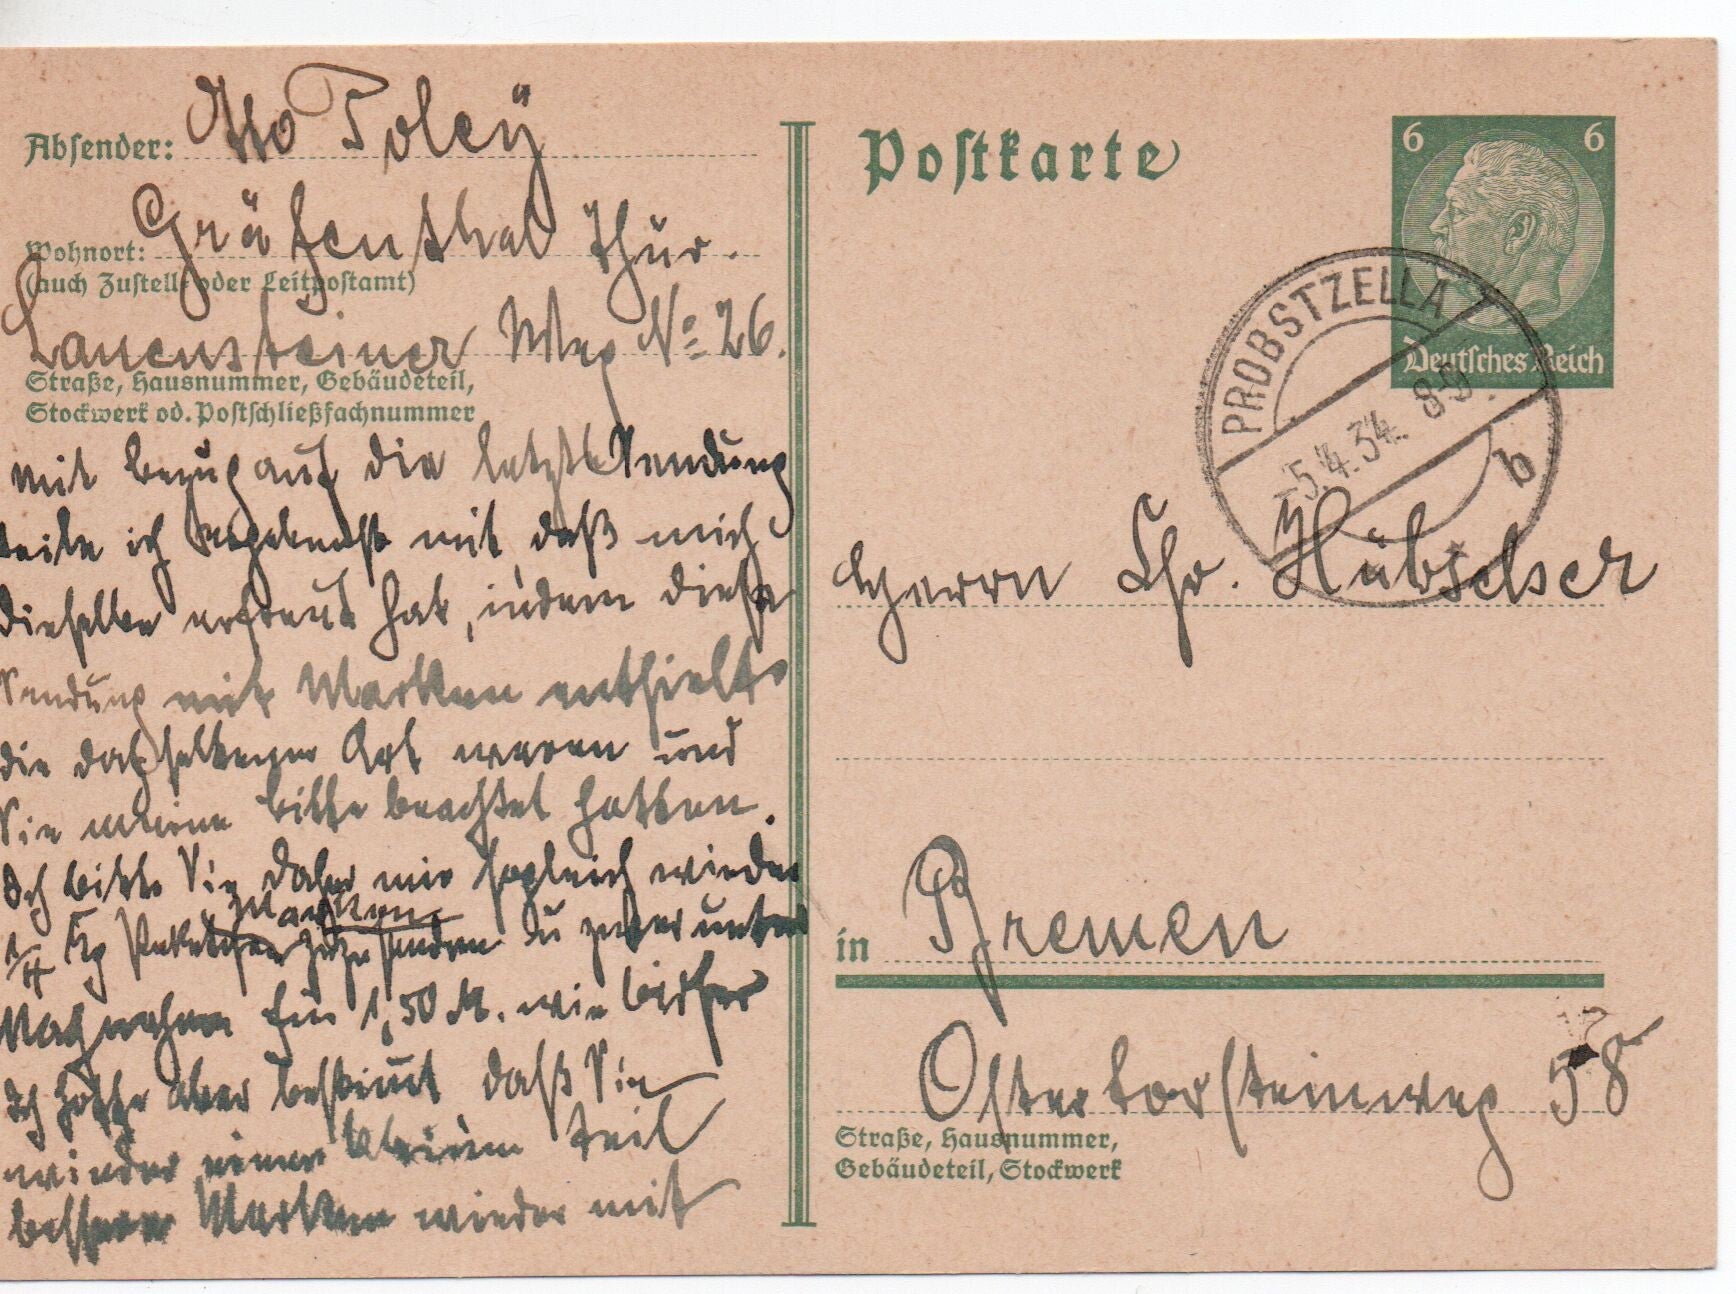 Absender: Otto Poley
Wohnort: Gräfenthal Thür.
(auch Zustell- oder Leitpostamt)
Lauensteiner Weg No 26.
Straße, Hausnummer, Gebäudeteil,
Stockwerk od. Postschließfachnummer
mit bezug auf die letzte Sendung
teile ich ergebenst mit, daß mich
dieselbe erfreut hat, indem diese
Sendung mit Marken enthielt
die derselben Art waren und
Sie meine bitte beachtet hatten.
Ich bitte Sie daher mir sogleich wieder
Marken
1/4 Kg Paketchen zuzusenden zu unter
Nachnahme für 1,50 M. wie bisher
Ich hoffe aber bestimmt daß Sie
wieder einen kleinen teil
bessere Marken wieder mit
Postkarte
6 6
Deutsches Reich
PROBSTZELLA
-5.4.34. 8-9
b
Herrn Chr. Hübscher
in Bremen
Ostertorsteinweg 58
Straße, Hausnummer,
Gebäudeteil, Stockwerk